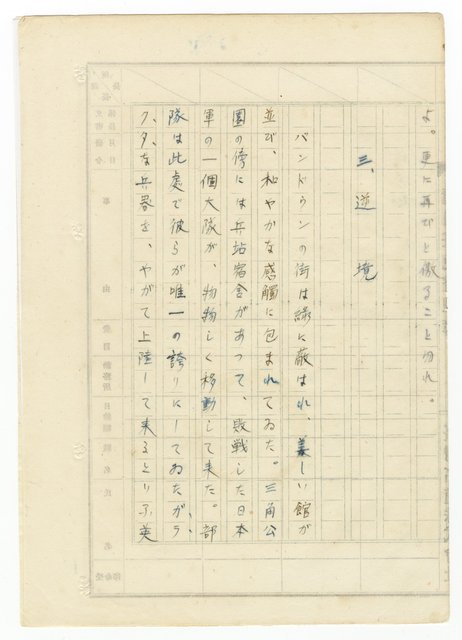 よ。更に再びと徹ること勿れ。
三、逆境
バンドウンの街は緑に蔽はれ、美しい館が
並び、秘やかな感觸に包まれてゐた。三角公
園の傍には兵站宿舎があつて、敗戦した日本
軍の一個大隊が、物物しく移動して来た。部
隊は此處で彼らが唯一の誇りにしてゐたガラ、
クタな兵器を、やがて上陸して来るといふ英